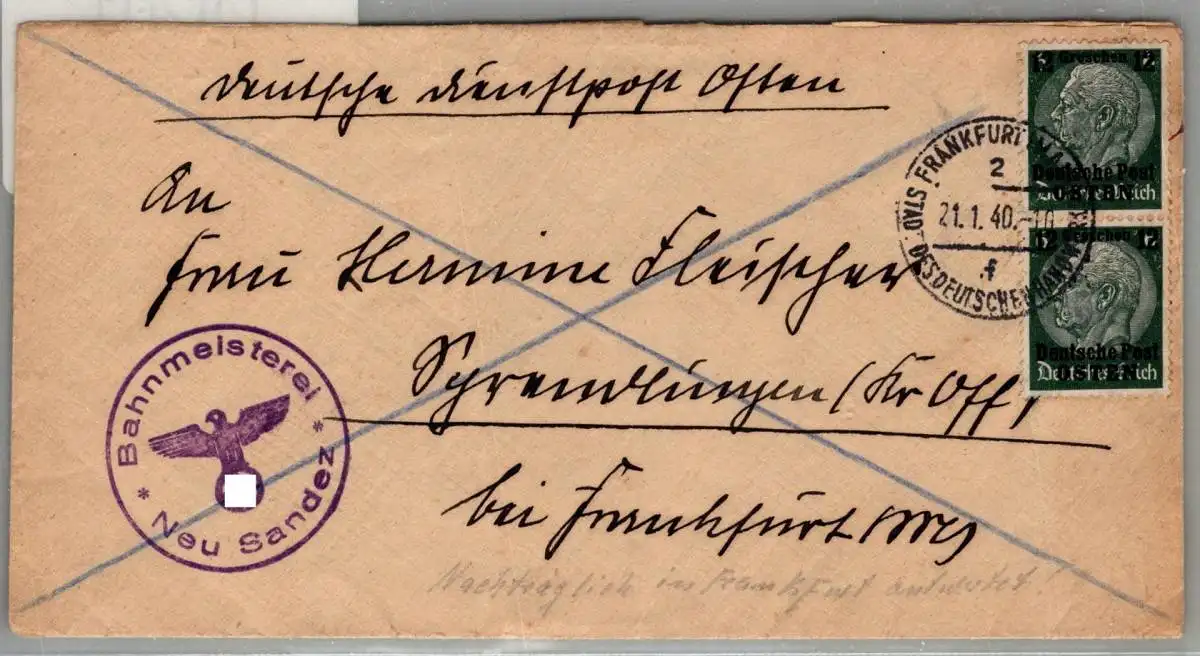 Deutsche Dienstpost Osten
An
Frau Hermine Fleischer
Sprendlingen (Kr Off)
bei Frankfurt
Nachträglich in Frankfurt entwertet!
Bahnmeisterei
* Neu Sandez *
FRANKFURT
2
21.1.40.-10
f
STADT DES DEUTSCHEN HANDWERKS
12 Groschen 12
Deutsche Post
OSTEN
Deutsches Reich
12 Groschen 12
Deutsche Post
OSTEN
Deutsches Reich